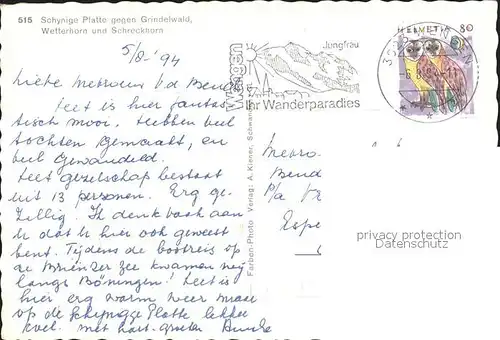 515 Schynige Platte gegen Grindelwald,
Wetterhorn und Schreckhorn
5/8-'94
Liebe Mevrouw v.d. Bend
Leet is hier fantas
tisch mooi. Hebben veel
tochten gemaakt, en
veel Gewandeld.
Leet gezelschap bestaat
uit 13 personen. Erg ge
Zellig. Ik denk vaak aan
U dat U hier ook geweest
bent. Tijdens de bootreis op
de Brienzer zee kwamen wij
langs Böningen! Leet is
hier erg warm weer maar
op de Schynigge Platte lekker
koel. Met hart. groeten
Wengen
Jungfrau
Ihr Wanderparadies
HELVETIA 80
Farben-Photo Verlag: A. Kiener, Schwanden
Mevro.
Bend
P/a
Espe
6
privacy protection
Datenschutz